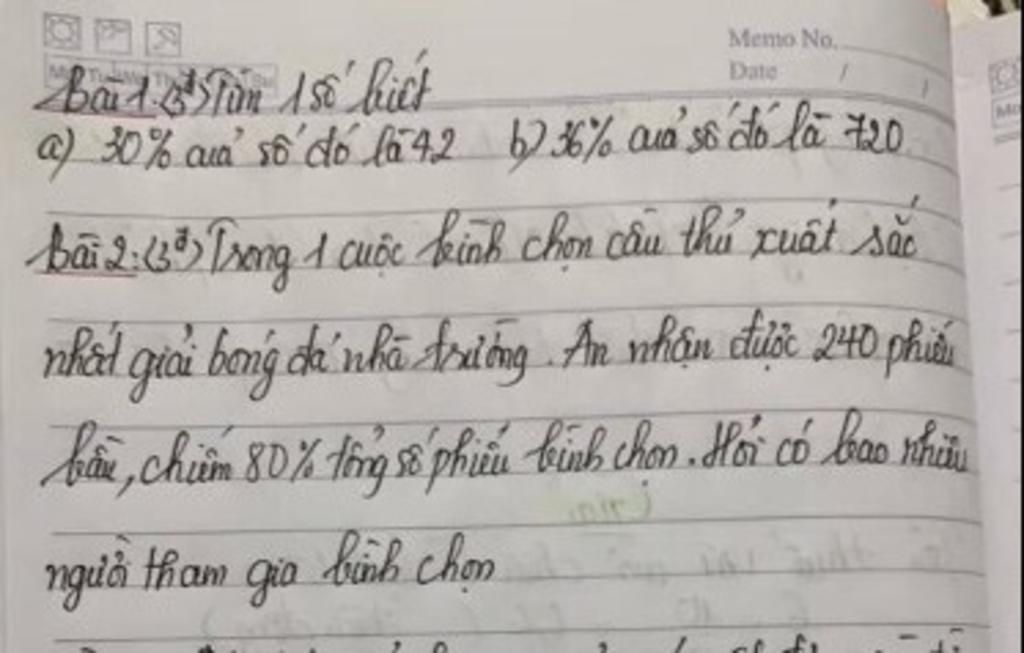 Memo No.
Date / /
Bài 1: (3đ) Tìm 1 số biết
a) 30% của số đó là 42 b) 36% của số đó là 720
Bài 2: (3đ) Trong 1 cuộc bình chọn cầu thủ xuất sắc
nhất giải bóng đá nhà trường. An nhận được 240 phiếu
bầu, chiếm 80% tổng số phiếu bình chọn. Hỏi có bao nhiêu
người tham gia bình chọn